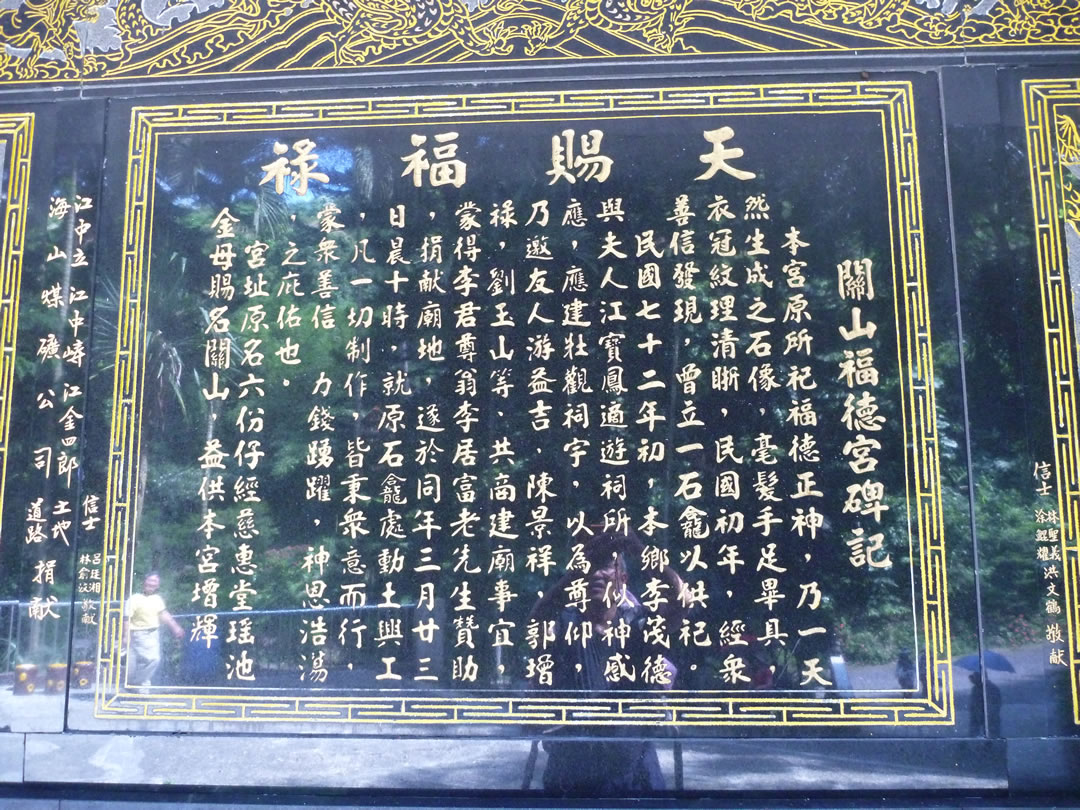 天賜福祿
關山福德宮碑記
本宮原所祀福德正神，乃一天
然生成之石像，毫髮手足畢具，
衣冠紋理清晣，民國初年，經眾
善信發現，曾立一石龕以供祀。
民國七十二年初，本鄉李茂德
與夫人江寶鳳適遊祠所，似神感
應，應建壯觀祠宇，以為尊仰，
乃邀友人游益吉、陳景祥、郭增
祿，劉玉山等、共商建廟事宜，
蒙得李君尊翁李居富老先生贊助
，捐献廟地，遂於同年三月廿三
日晨十時，就原石龕處動土興工
，凡一切制作，皆秉眾意而行，
蒙眾善信 力錢踴躍，神恩浩蕩
，之庇佑也。
宮址原名六份仔經慈惠堂瑤池
金母賜名關山，益供本宮增輝
信士 林聖義 洪文鶴 敬献
江中立 江中峙 江金四郎 土地
海山煤礦公司 道路 捐献
信士 敬献